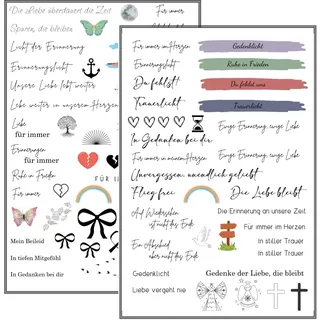 Die Liebe überdauert die Zeit
Spuren, die bleiben
Licht der Erinnerung
Erinnerungslicht
Unsere Liebe lebt weiter
Lebe weiter in unseren Herzen
Liebe
für immer
Erinnerungen
für immer
Ruhe in Frieden
Für immer
FÜR I
Mein Beileid
In tiefen Mitgefühl
In Gedanken bei dir
Für immer im Herzen
Gedenklicht
Erinnerungslicht
Ruhe in Frieden
Du fehlst
Du fehlst uns
Trauerlicht
Trauerlicht
In Gedanken bei dir
Ewige Erinnerung, ewige Liebe
Für immer in unseren Herzen
Unvergessen, unendlich geliebt
Flieg frei
Die Liebe bleibt
Auf Wiedersehen
ist nicht das Ende
Die Erinnerung an unsere Zeit
Für immer im Herzen
Ein Abschied
aber nicht das Ende
In stiller Trauer
In stiller Trauer
Gedenklicht
Gedenke der Liebe, die bleibt
Liebe vergeht nie